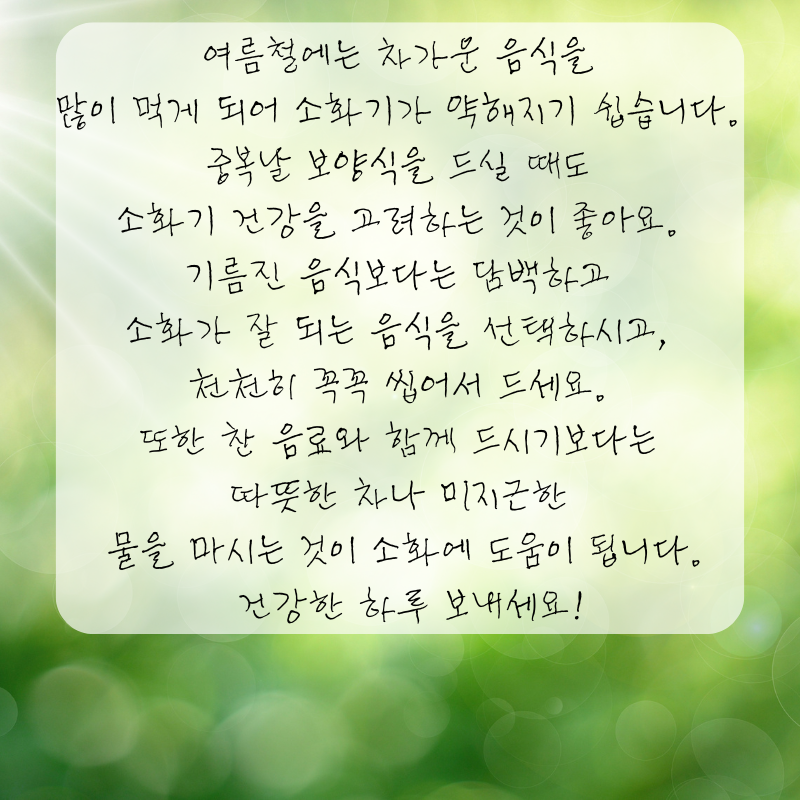 여름철에는 차가운 음식을
많이 먹게 되어 소화기가 약해지기 쉽습니다.
중복날 보양식을 드실 때도
소화기 건강을 고려하는 것이 좋아요.
기름진 음식보다는 담백하고
소화가 잘 되는 음식을 선택하시고,
천천히 꼭꼭 씹어서 드세요.
또한 찬 음료와 함께 드시기보다는
따뜻한 차나 미지근한
물을 마시는 것이 소화에 도움이 됩니다.
건강한 하루 보내세요!